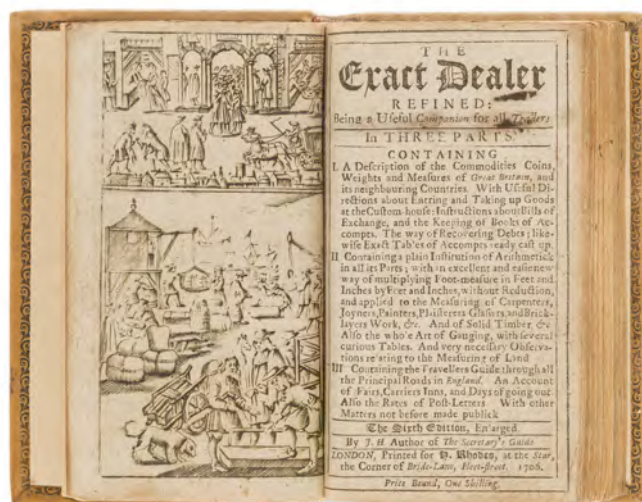 THE
Exact Dealer
REFINED:
Being a Useful Companion for all Traders
In THREE PARTS.
CONTAINING
I. A Description of the Commodities Coins,
Weights and Measures of Great Britain, and
its neighbouring Countries. With Useful Di-
rections about Entring and Taking up Goods
at the Custom-house: Instructions about Bills of
Exchange, and the Keeping of Books of Ac-
compts. The way of Recovering Debts; like-
wise Exact Tables of Accompts ready cast up.
II Containing a plain Institution of Arithmetick
in all its Parts; with an excellent and easie new
way of multiplying Foot-measure in Feet and
Inches by Feet and Inches, without Reduction,
and applied to the Measuring of Carpenters,
Joyners, Painters, Plaisterers Glasiers, and Brick-
layers Work, &c. And of Solid Timber, &c
Also the whole Art of Gauging, with several
curious Tables. And very necessary Observa-
tions relating to the Measuring of Land
III Containing the Travellers Guide through all
the Principal Roads in England. An Account
of Fairs, Carriers Inns, and Days of going out
Also the Rates of Post-Letters With other
Matters not before made publick
The Sixth Edition, Enlarged
By J. H. Author of The Secretary's Guide
LONDON, Printed for H. Rhodes, at the Star,
the Corner of Bride-Lane, Fleet-street. 1706.
Price Bound, One Shilling.